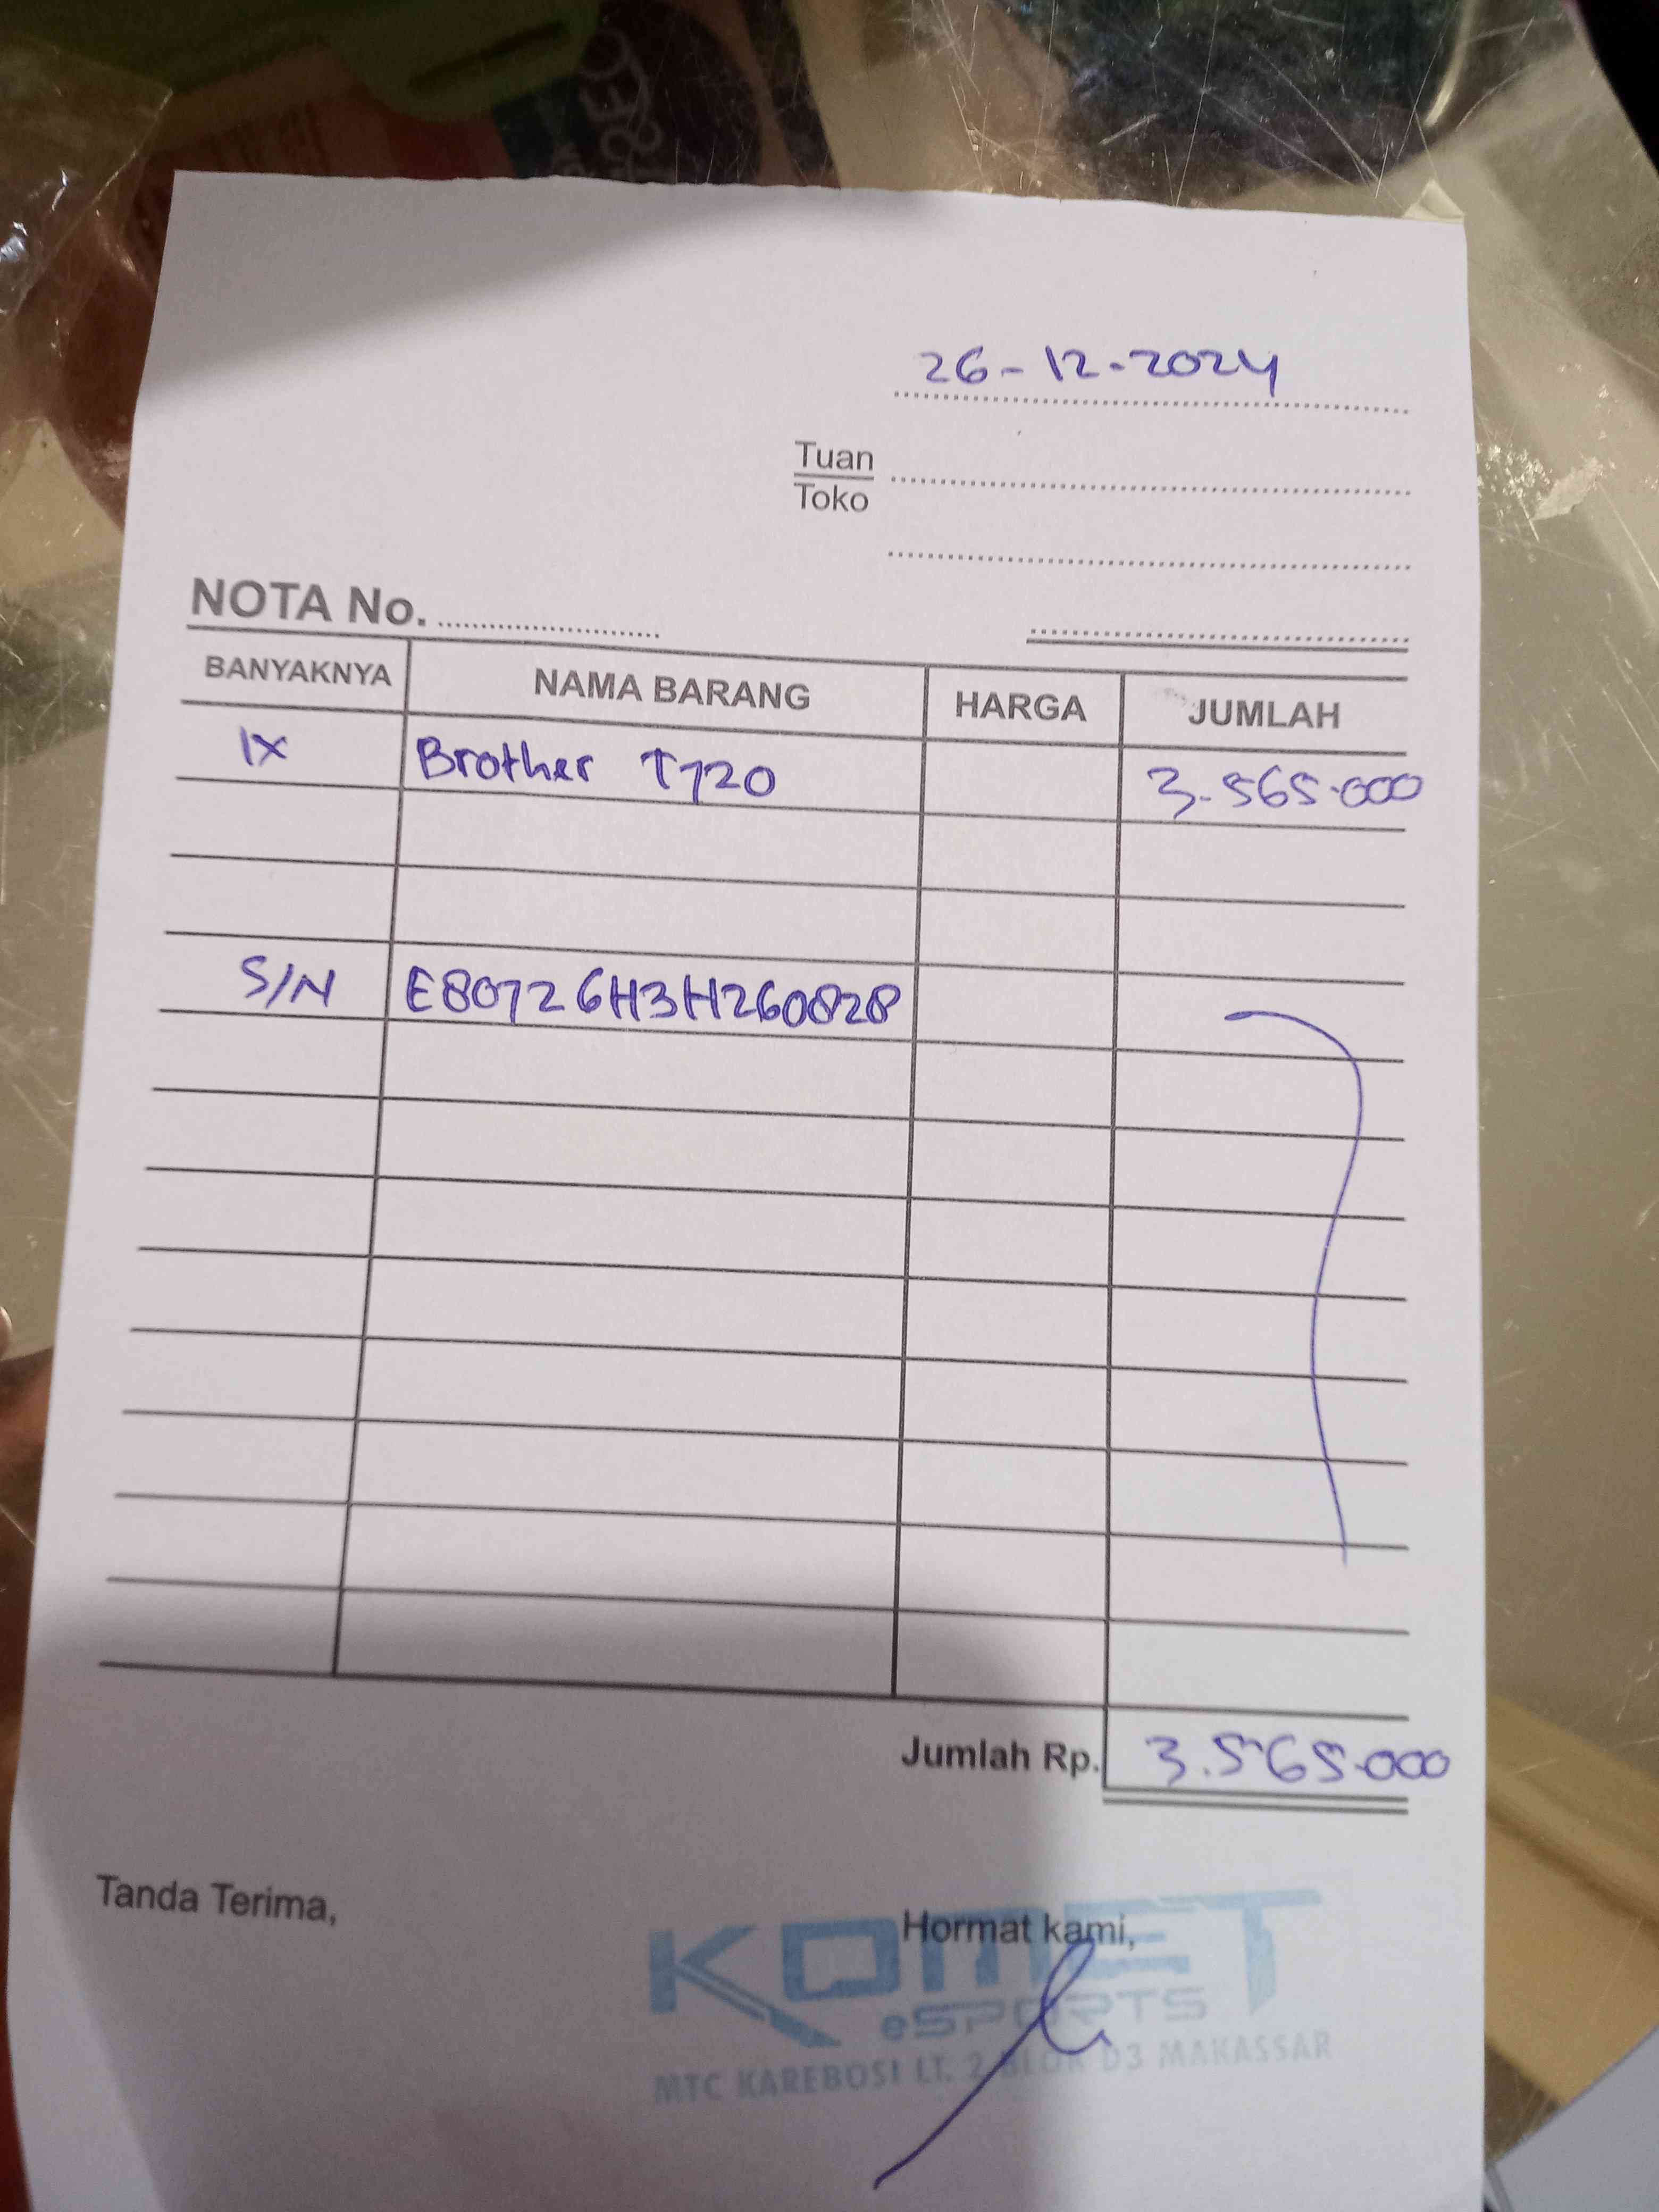 26-12-2024
Tuan
Toko
NOTA No.
BANYAKNYA NAMA BARANG HARGA JUMLAH
1x Brother T720 3.565.000
S/N E80726H3H260828
Jumlah Rp. 3.565.000
Tanda Terima,
Hormat kami,
KOMET
eSPORTS
MTC KAREBOSI LT. 2 BLOK D3 MAKASSAR